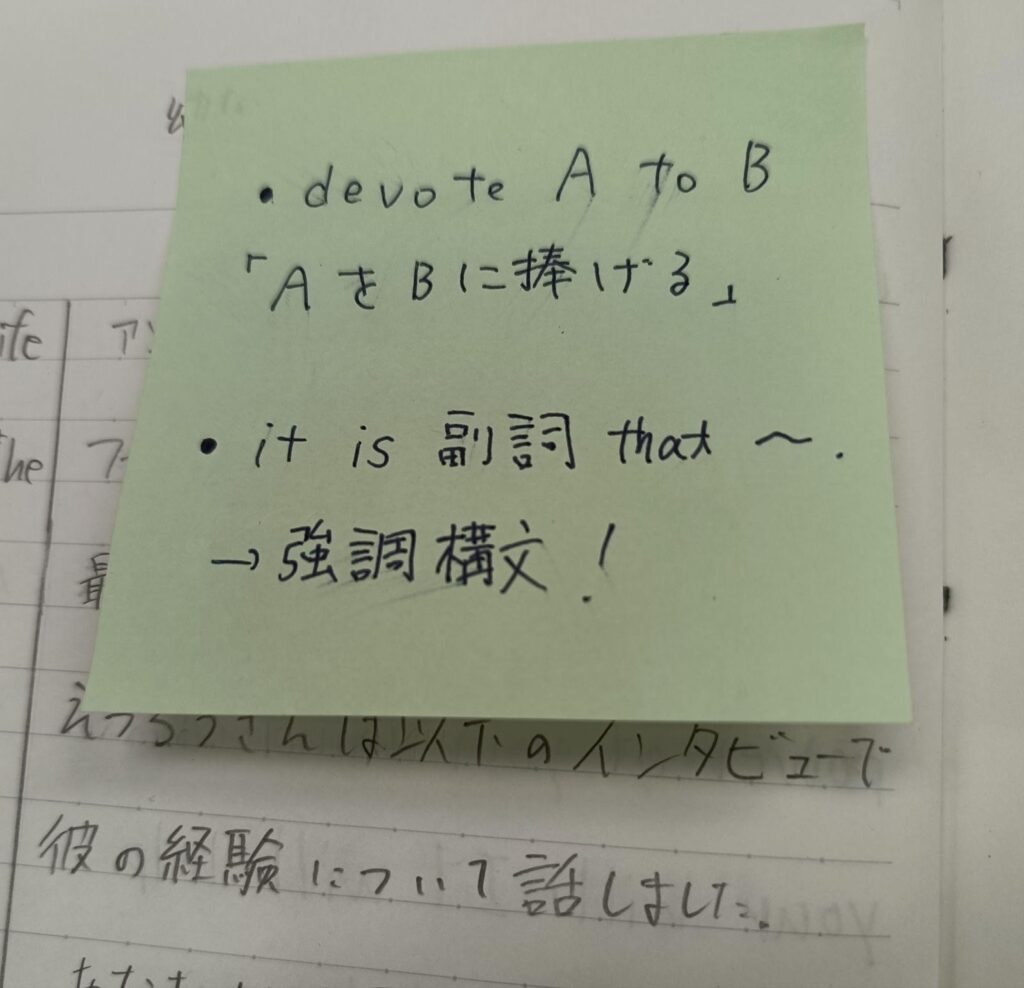 • devote A to B
「AをBに捧げる」
• it is 副詞 that ～.
→強調構文!
ife
the
えつろうさんは以下のインタビューで
彼の経験について話しました。